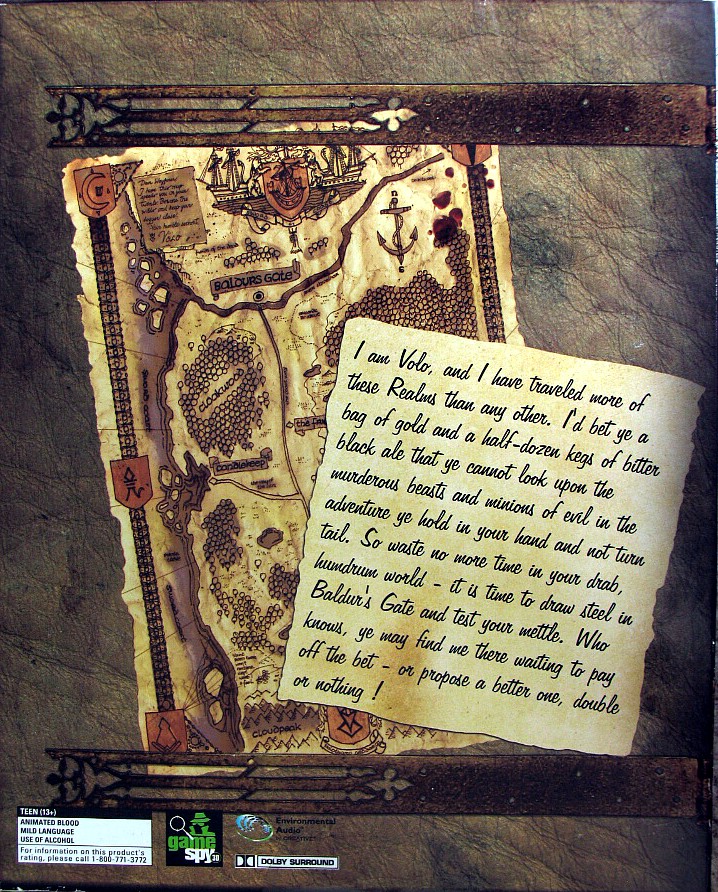 Volo
BALDURS GATE
Cloakwood
Candlekeep
I am Volo, and I have traveled more of
these Realms than any other. I'd bet ye a
bag of gold and a half-dozen kegs of bitter
black ale that ye cannot look upon the
murderous beasts and minions of evil in the
adventure ye hold in your hand and not turn
tail. So waste no more time in your drab,
humdrum world - it is time to draw steel in
Baldur's Gate and test your mettle. Who
knows, ye may find me there waiting to pay
off the bet - or propose a better one, double
or nothing !
CLOUDPEAK
TEEN (13+)
ANIMATED BLOOD
MILD LANGUAGE
USE OF ALCOHOL
For information on this product's
rating, please call 1-800-771-3772
game
spy 3D
Environmental
Audio
DOLBY SURROUND